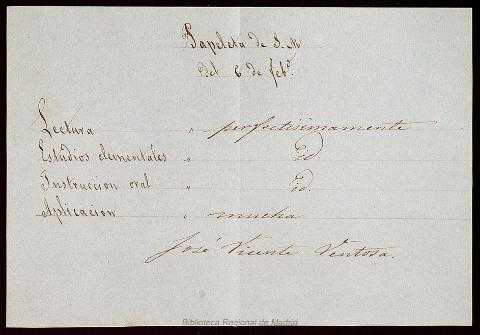 Papeleta de S. M
del 6 de feb.º
Lectura " perfectisimamente
Estudios elementales " Id
Instruccion oral " Id.
Aplicacion " mucha
José Vicente Ventosa.
Biblioteca Regional de Madrid